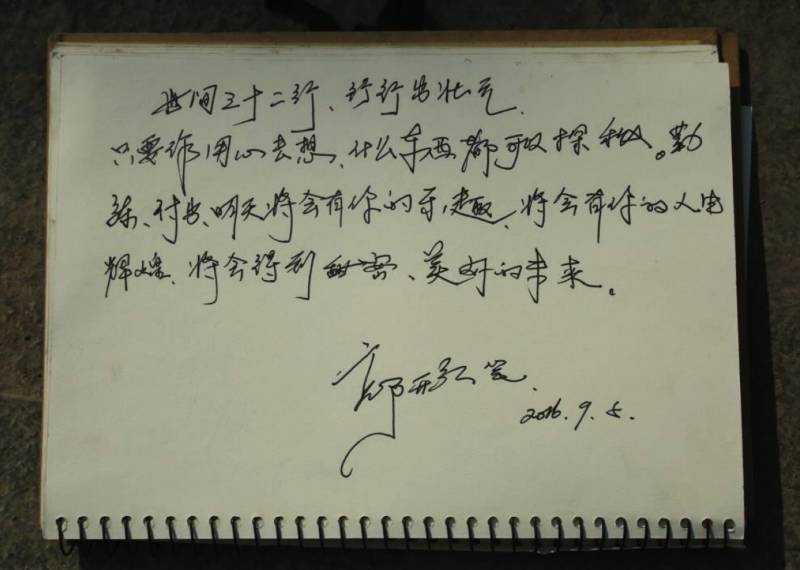 世间三十二行、行行出壮元
只要你用心去想、什么东西都可以探秘。勤
练、付出、明天将会有你的乐趣、将会有你的人生
辉煌、将会得到甜密、美好的未来。
2016.9.5.